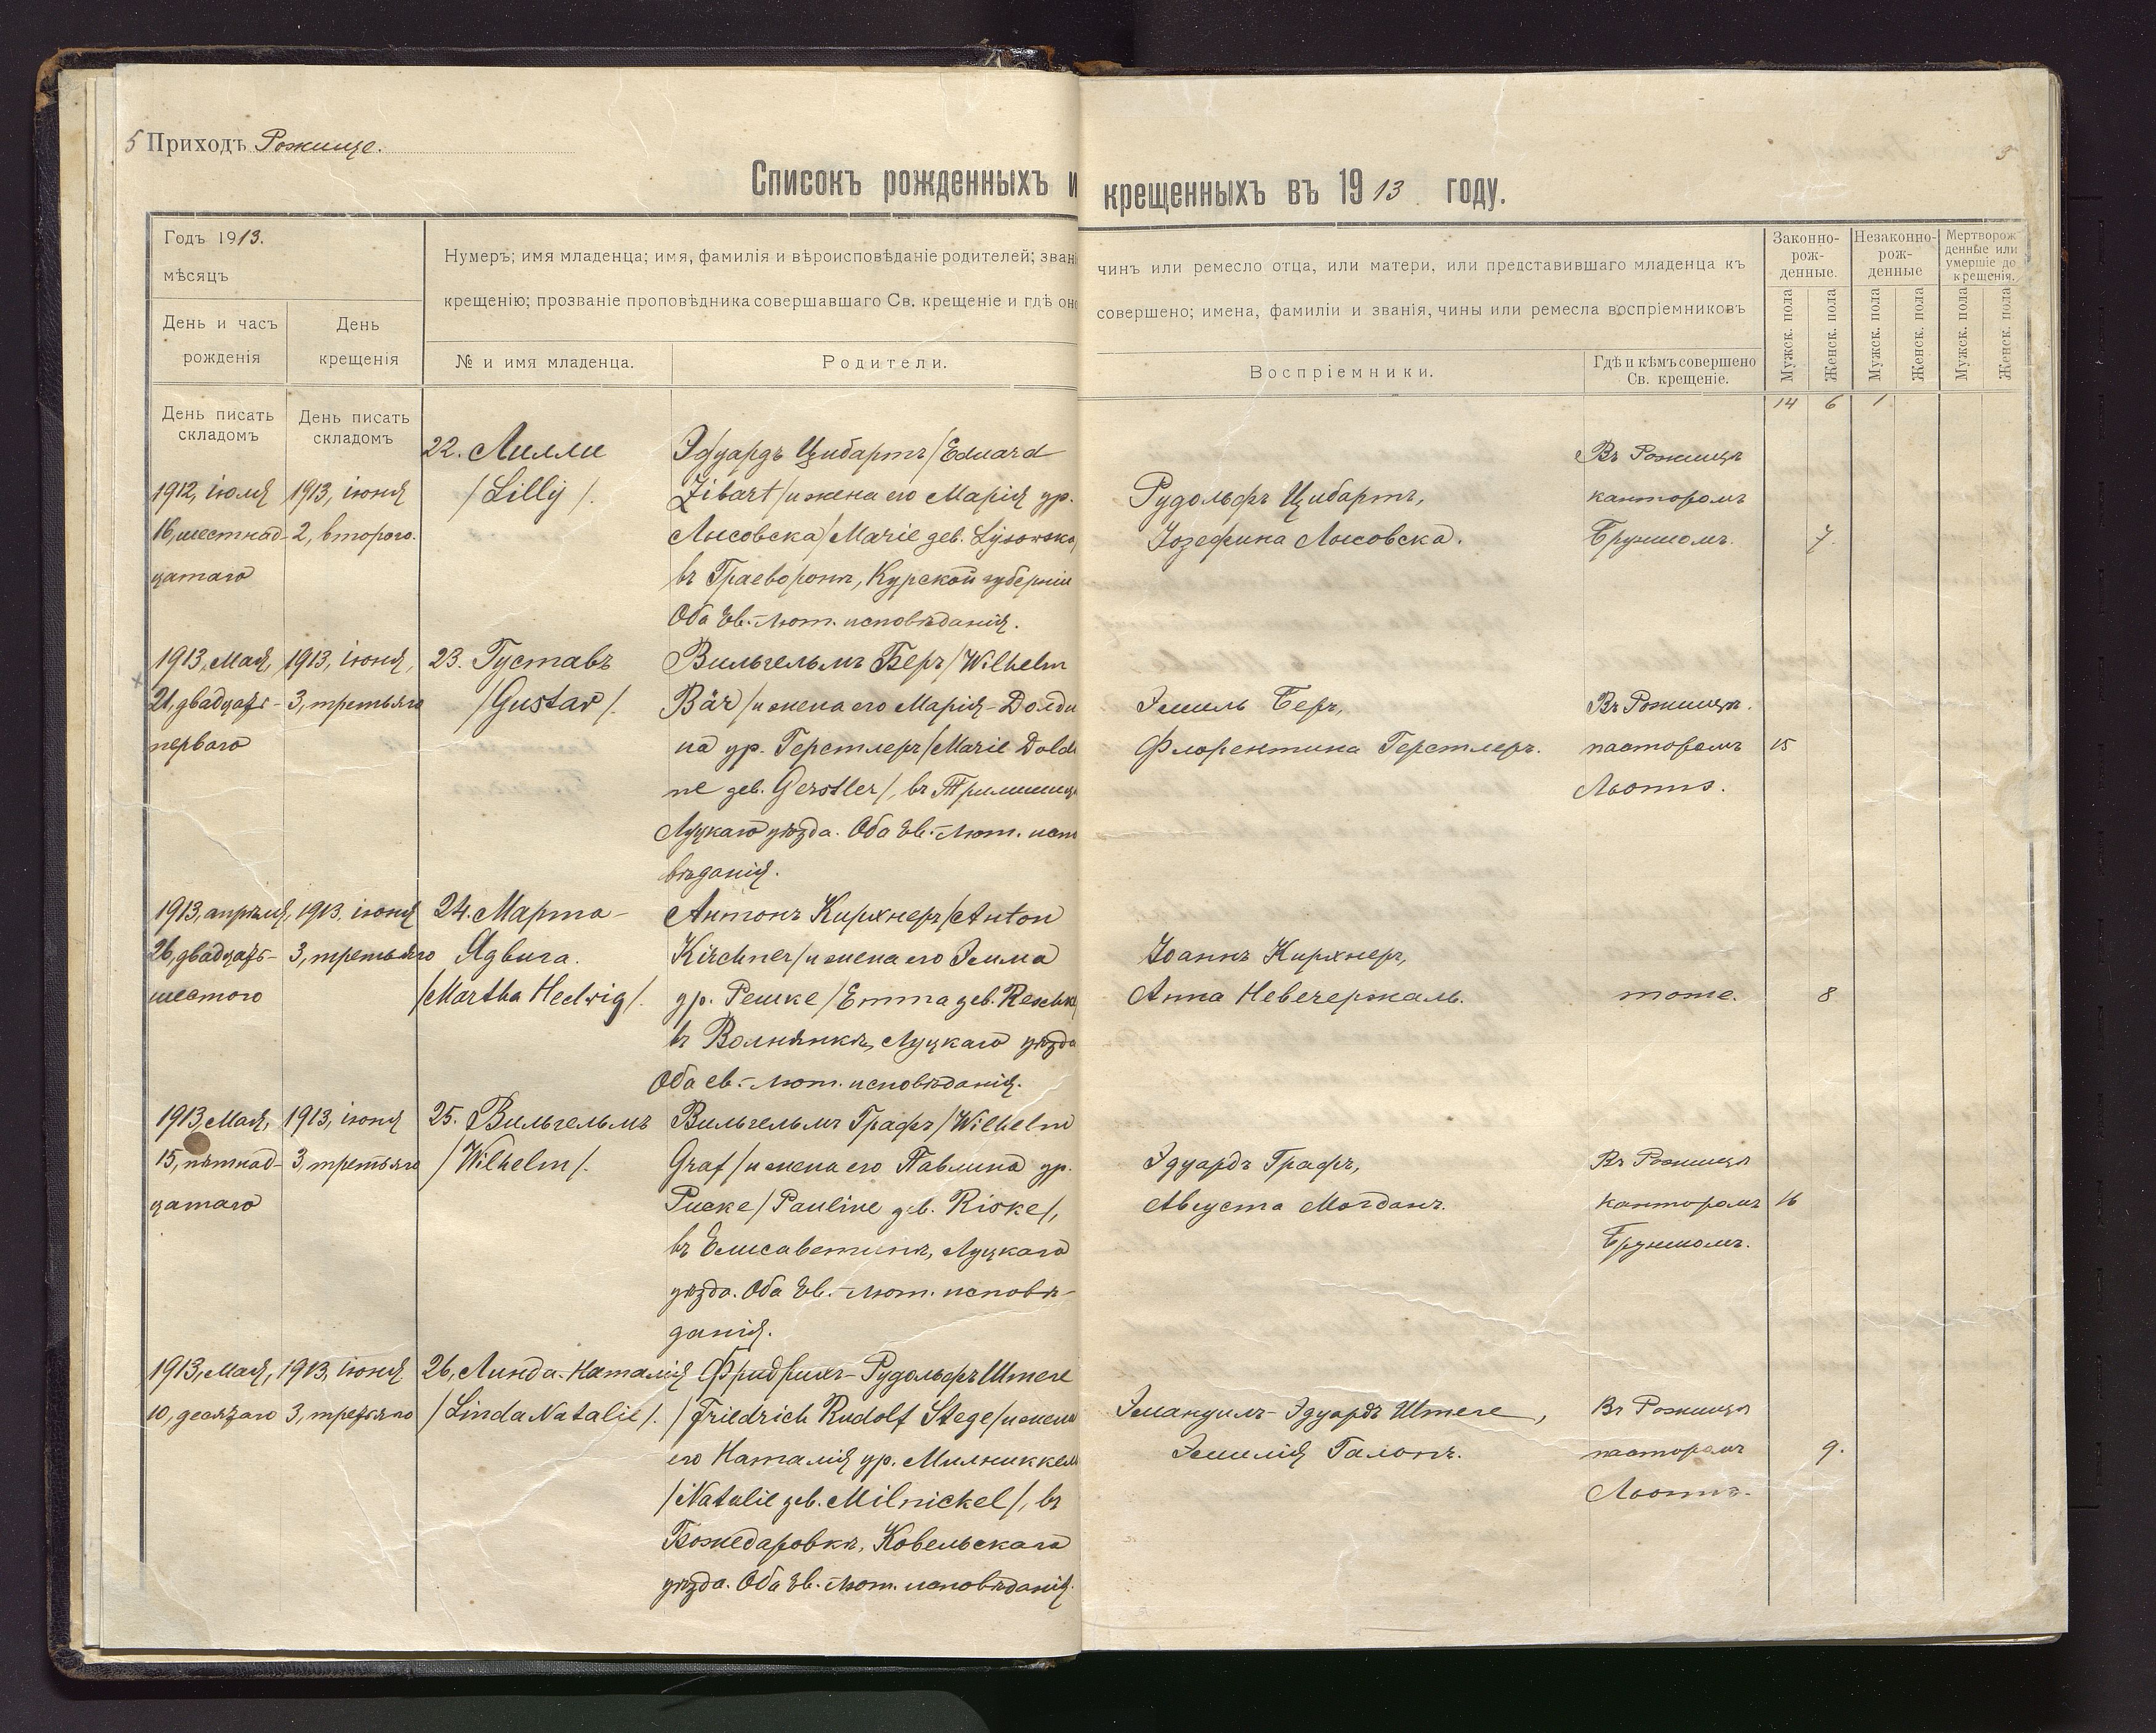 5 Приходъ Рожище.
5
Списокъ рожденныхъ и крещенныхъ въ 1913 году.
Годъ 1913.
мѣсяцъ
День и часъ рожденія
День крещенія
Нумеръ; имя младенца; имя, фамилія и вѣроисповѣданіе родителей; зван
крещенію; прозваніе проповѣдника совершавшаго Св. крещеніе и гдѣ оно
№ и имя младенца.
Родители.
чинъ или ремесло отца, или матери, или представившаго младенца къ
совершено; имена, фамиліи и званія, чины или ремесла воспріемниковъ
Воспріемники.
Гдѣ и кѣмъ совершено
Св. крещеніе.
Законно-
рож-
денные.
Незаконно-
рож-
денные
Мертворож
денные или
умершіе до
крещенія.
Мужск. пола
Женск. пола
Мужск. пола
Женск. пола
Мужск. пола
Женск. пола
День писать
складомъ
День писать
складомъ
14 6 1
1912, іюля
16, шестнад-
цатаго
1913, іюня
2, второго.
22. Лилли
/Lilly/.
Эдуардъ Цибартъ /Eduard
Zibart/ и жена его Марія ур.
Лысовска /Marie geb. Lysowska/
въ Граеворонѣ, Курской губерніи
Оба Ев.-лют. исповѣданія.
Рудольфъ Цибартъ,
Іозефина Лысовска.
Въ Рожищѣ
канторомъ
Бруммомъ.
7.
1913, Мая,
21, двадцать-
перваго
1913, іюня,
3, третьяго
23. Густавъ
/Gustav/.
Вильгельмъ Беръ /Wilhelm
Bär/ и жена его Марія-Долди
на ур. Герстлеръ /Marie Doldi
ne geb. Gerstler/, въ
Луцкаго уѣзда. Оба Ев.-лют. испо
вѣданія.
Эмиль Беръ,
Флорентина Герстлеръ.
Въ Рожищѣ.
пасторомъ
15
1913, апрѣля,
26, двадцать-
шестого
1913, іюня
3, третьяго
24. Марта-
Ядвига.
/Martha Hedwig/.
Антонъ Кирхнеръ /Anton
Kirchner/ и жена его Эмма
ур. Решке /Emma geb. Reschke/
въ Волнянкѣ, Луцкаго уѣзда
Оба ев.-лют. исповѣданія.
Іоаннъ Кирхнеръ,
Анна Невечержаль.
тоже.
8
1913, Мая,
15, пятнад-
цатаго
1913, іюня
3, третьяго
25. Вильгельмъ
/Wilhelm/.
Вильгельмъ Графъ /Wilhelm
Graf/ и жена его Павлина ур.
Риске /Pauline geb. Riske/,
въ Елисаветинѣ, Луцкаго
уѣзда. Оба Ев.-лют. исповѣ-
данія.
Эдуардъ Графъ,
Августа Могданъ.
Въ Рожищѣ
канторомъ
Бруммомъ.
16
1913, Мая,
10, десятаго
1913, іюня
3, третьяго
26, Линда-Наталія
/Linda Natalie/.
Фридрихъ-Рудольфъ Штеге
/Friedrich Rudolf Stege/ и жена
его Наталія ур. Милниккель
/Natalie geb. Milnickel/, въ
Божедаровкѣ, Ковельскаго
уѣзда. Оба Ев.-лют. исповѣданія.
Эмануилъ-Эдуардъ Штеге,
Эмилія Галонъ.
Въ Рожищѣ
пасторомъ
9.